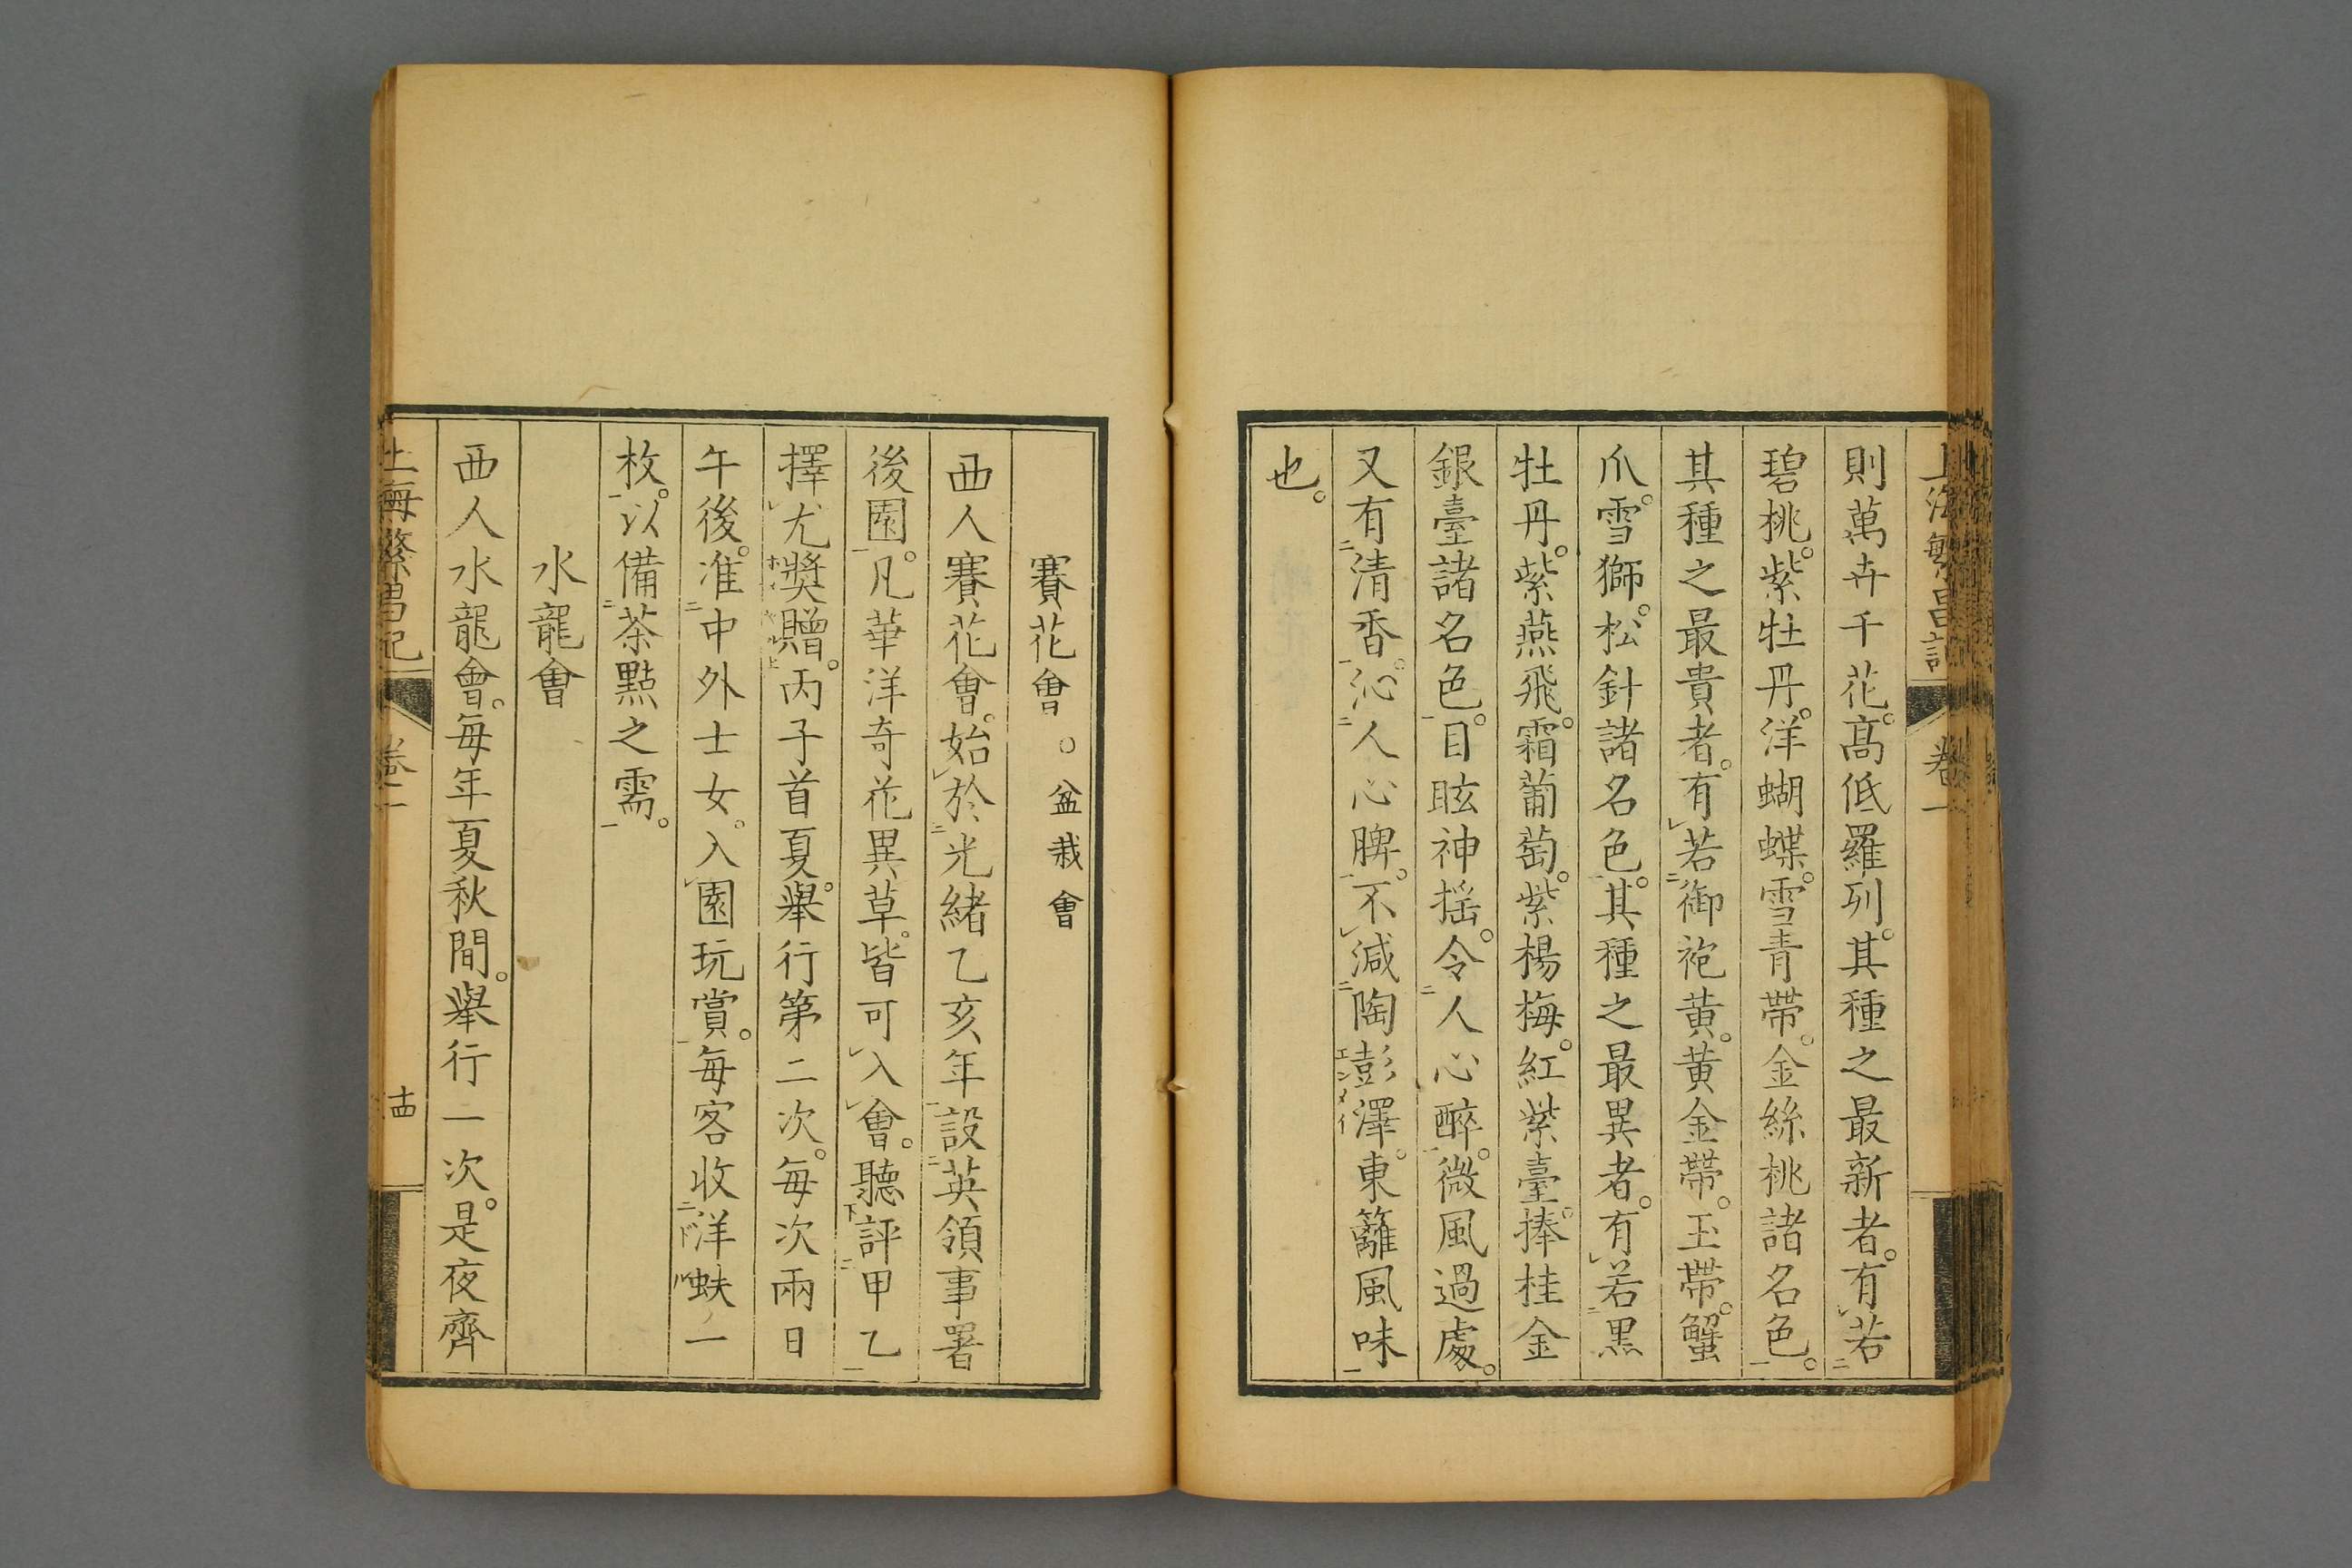 上海繁昌記 卷一
則萬卉千花。高低羅列。其種之最新者。有若
碧桃。紫牡丹。洋蝴蝶。雪青帶。金絲桃諸名色。
其種之最貴者。有若御袍黄。黄金帶。玉帶。蟹
爪。雪獅。松針諸名色。其種之最異者。有若黑
牡丹。紫燕飛。霜葡萄。紫楊梅。紅紫臺。捧桂金
銀臺諸名色。目眩神摇。令人心醉。微風過處。
又有清香。沁人心脾。不減陶彭澤。東籬風味
也。
賽花會 ○盆栽會
西人賽花會。始於光緒乙亥年設英領事署
後園。凡華洋奇花異草。皆可入會。聽評甲乙
擇尤獎贈。丙子首夏。舉行第二次。每次兩日
午後。准中外士女。入園玩賞。每客收洋蚨一
枚。以備茶點之需。
水龍會
西人水龍會。每年夏秋間。舉行一次。是夜齊
上海繁昌記 卷一 十四